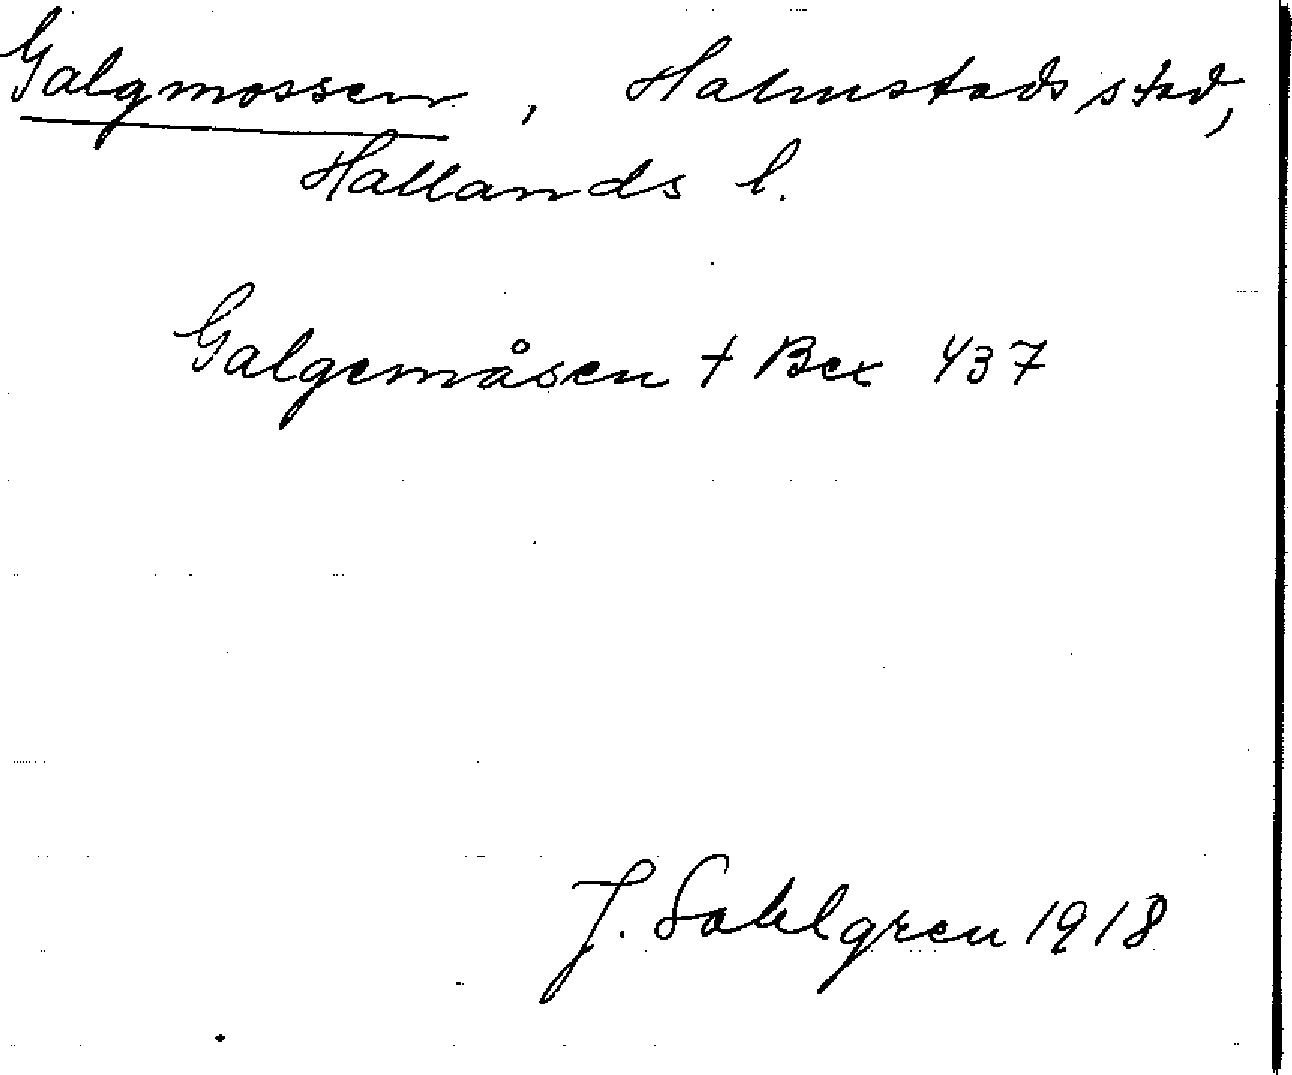 Galgmossen, Halmstads stad,
Hallands l.
Galgemåsen + Bex 437
J. Sahlgren 1918